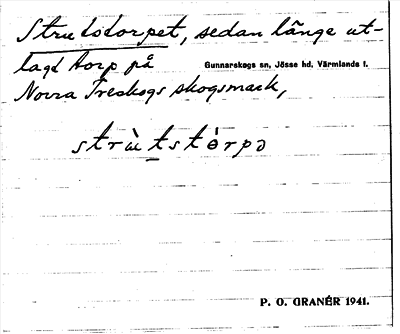 Strutstorpet, sedan länge ut-
lagd torp på Gunnarskogs sn, Jösse hd, Värmlands l.
Norra Treskogs skogsmark,
strùtstòrpə
P. O. GRANÉR 1941.